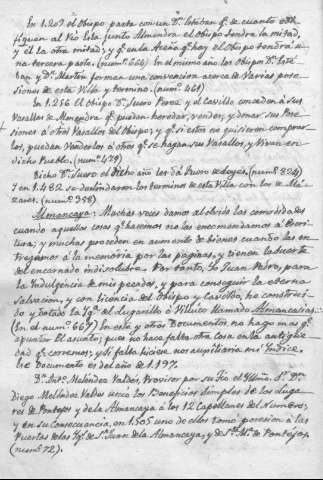 En 1.209 el Obispo pacta con un Dn. Esteban qe. de cuanto edi-
fiquen al Rio Esta junto Almendra el Obispo tendra la mitad,
y él la otra mitad; y qe. en la Areña qe. hay el Obispo tendrá u-
na tercera parte. (num.º 666) En el mismo año los Obispos Dn. Este-
ban y Dn. Martin forman una convencion acerca de varias pose-
siones de esta Villa y termino. (num.º 461)
En 1.256 El Obispo Dn. Suero Perez y el Cavildo conceden á sus
Vasallos de Almendra qe. puedan heredar, vender, y donar sus Pose-
siones á otros Vasallos del Obispo; y qe. si estos no quisieren comprar-
los, puedan venderlos á otros qe. se hagan sus Vasallos, y Vivan en
dicho Pueblo. (num.º 429)
Dicho Dn. Suero el dicho año les dá Fuero de Leyes. (num.º 824)
Y en 1.482 se deslindaron los terminos de esta Villa con los de
(num.º 358)
Almancaya: Muchas veces damos al olvido las comodidades
cuando aquellas cosas qe. hacemos no las encomendamos á Escri-
tura; y muchas proceden en aumento de bienes cuando las en-
tregamos á la memoria por las paginas, y tienen la suerte
del encarnado indisoluble. Por tanto, Yo Juan Pedro, para
la Indulgencia de mis pecados, y para conseguir la eterna
Salvacion, y con licencia del Obispo y Cavildo, he construi-
do y dotado la Ygª. al Lugarillo ó Villico llamado Almancaias:
(En el num.º 667) En esta y otros Documentos no hago mas qe.
apuntar El asunto; pues no hace falta otra cosa en la antigüe-
dad qe. corremos; y si falta hiciere nos auxiliaria mi Yndice.
Ese Documento es del año de 1.197.
Dn. Antº. Melendez Valdés, Provisor por su Tio el Yllmo. Sr. Dn.
Diego Meléndez Valdes unió los Beneficios simples de los Luga-
res de Pontejos y de la Almancaya á los 12 Capellanes del Numero;
y en su consecuencia, en 1.505 uno de ellos tomó posesion á las
Puertas de las Ygs. de Sn. Juan de la Almancaya, y de Stª. Mª. de Pontejos.
(num.º 72).